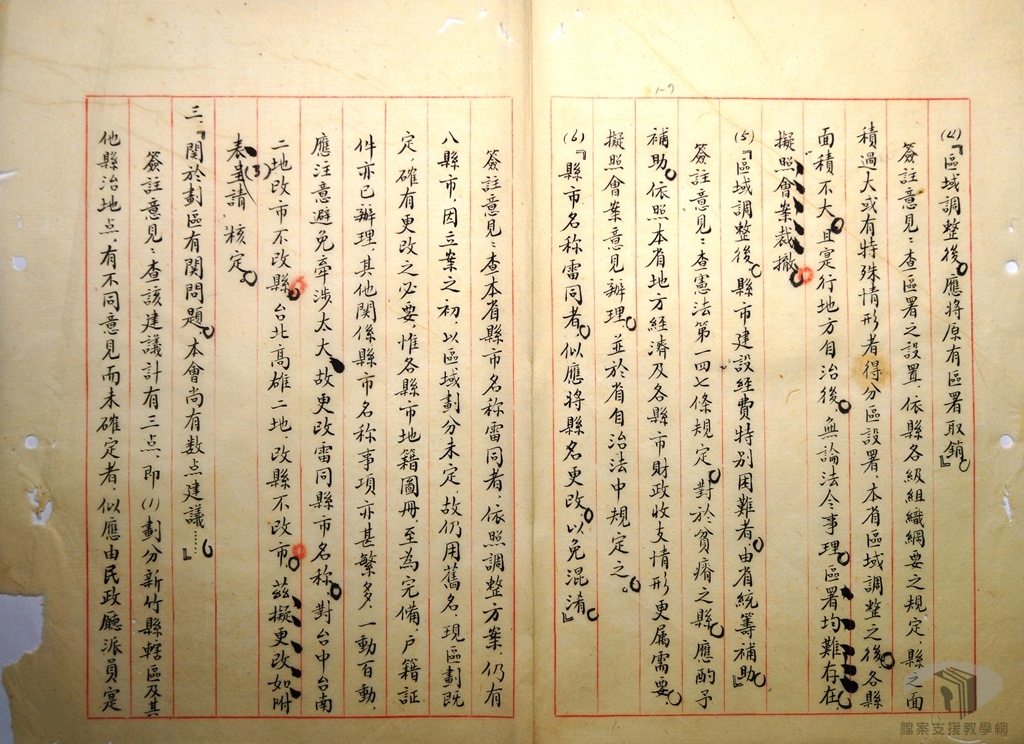 (4)『區域調整後，應將原有區署取銷。』
簽註意見：查區署之設置，依縣各級組織綱要之規定，縣之面
積過大或有特殊情形者得分區設署，本省區域調整之後，各縣
面積不大，且寔行地方自治後，無論法令事理，區署均難存在，
擬照會案裁撤。
(5)『區域調整後，縣市建設經費特別困難者，由省統籌補助。』
簽註意見：查憲法第一四七條規定，對於貧瘠之縣，應酌予
補助。依照本省地方經濟及各縣市財政收支情形更屬需要，
擬照會案意見辦理，並於省自治法中規定之。
(6)『縣市名称雷同者，似應將縣名更改，以免混淆。』
簽註意見：查本省縣市名称雷同者，依照調整方案，仍有
八縣市，因立案之初，以區域劃分未定，故仍用舊名，現區劃既
定，確有更改之必要，惟各縣市地籍圖冊至為完備，户籍証
件亦已辦理，其他関係縣市名称事項亦甚繁多，一動百動，
應注意避免牽涉太大，故更改雷同縣市名称，對台中台南
二地改市不改縣，台北高雄二地，改縣不改市，茲擬更改如附
表(3)請核定。
三、『関於劃區有関問題，本會尚有数点建議……。』
簽註意見：查該建議計有三点，即(1)劃分新竹縣轄區及其
他縣治地点，有不同意見而未確定者，似應由民政廳派員寔
檔案支援教學網